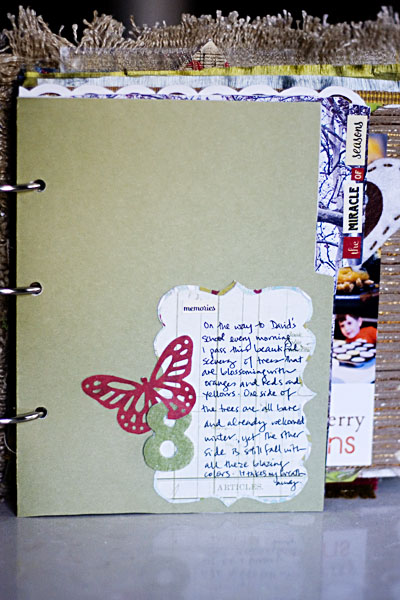 the MIRACLE OF seasons
memories
On the way to David's
School every morning
I pass this beautiful
Scenery of trees that
are blossoming with
oranges and Reds and
yellows. One side of
the trees are all bare
and already welcomed
winter, yet the other
side is still Fall with
all these blazing
colors. It takes my breath
away.
ARTICLES.
8
erry
ns